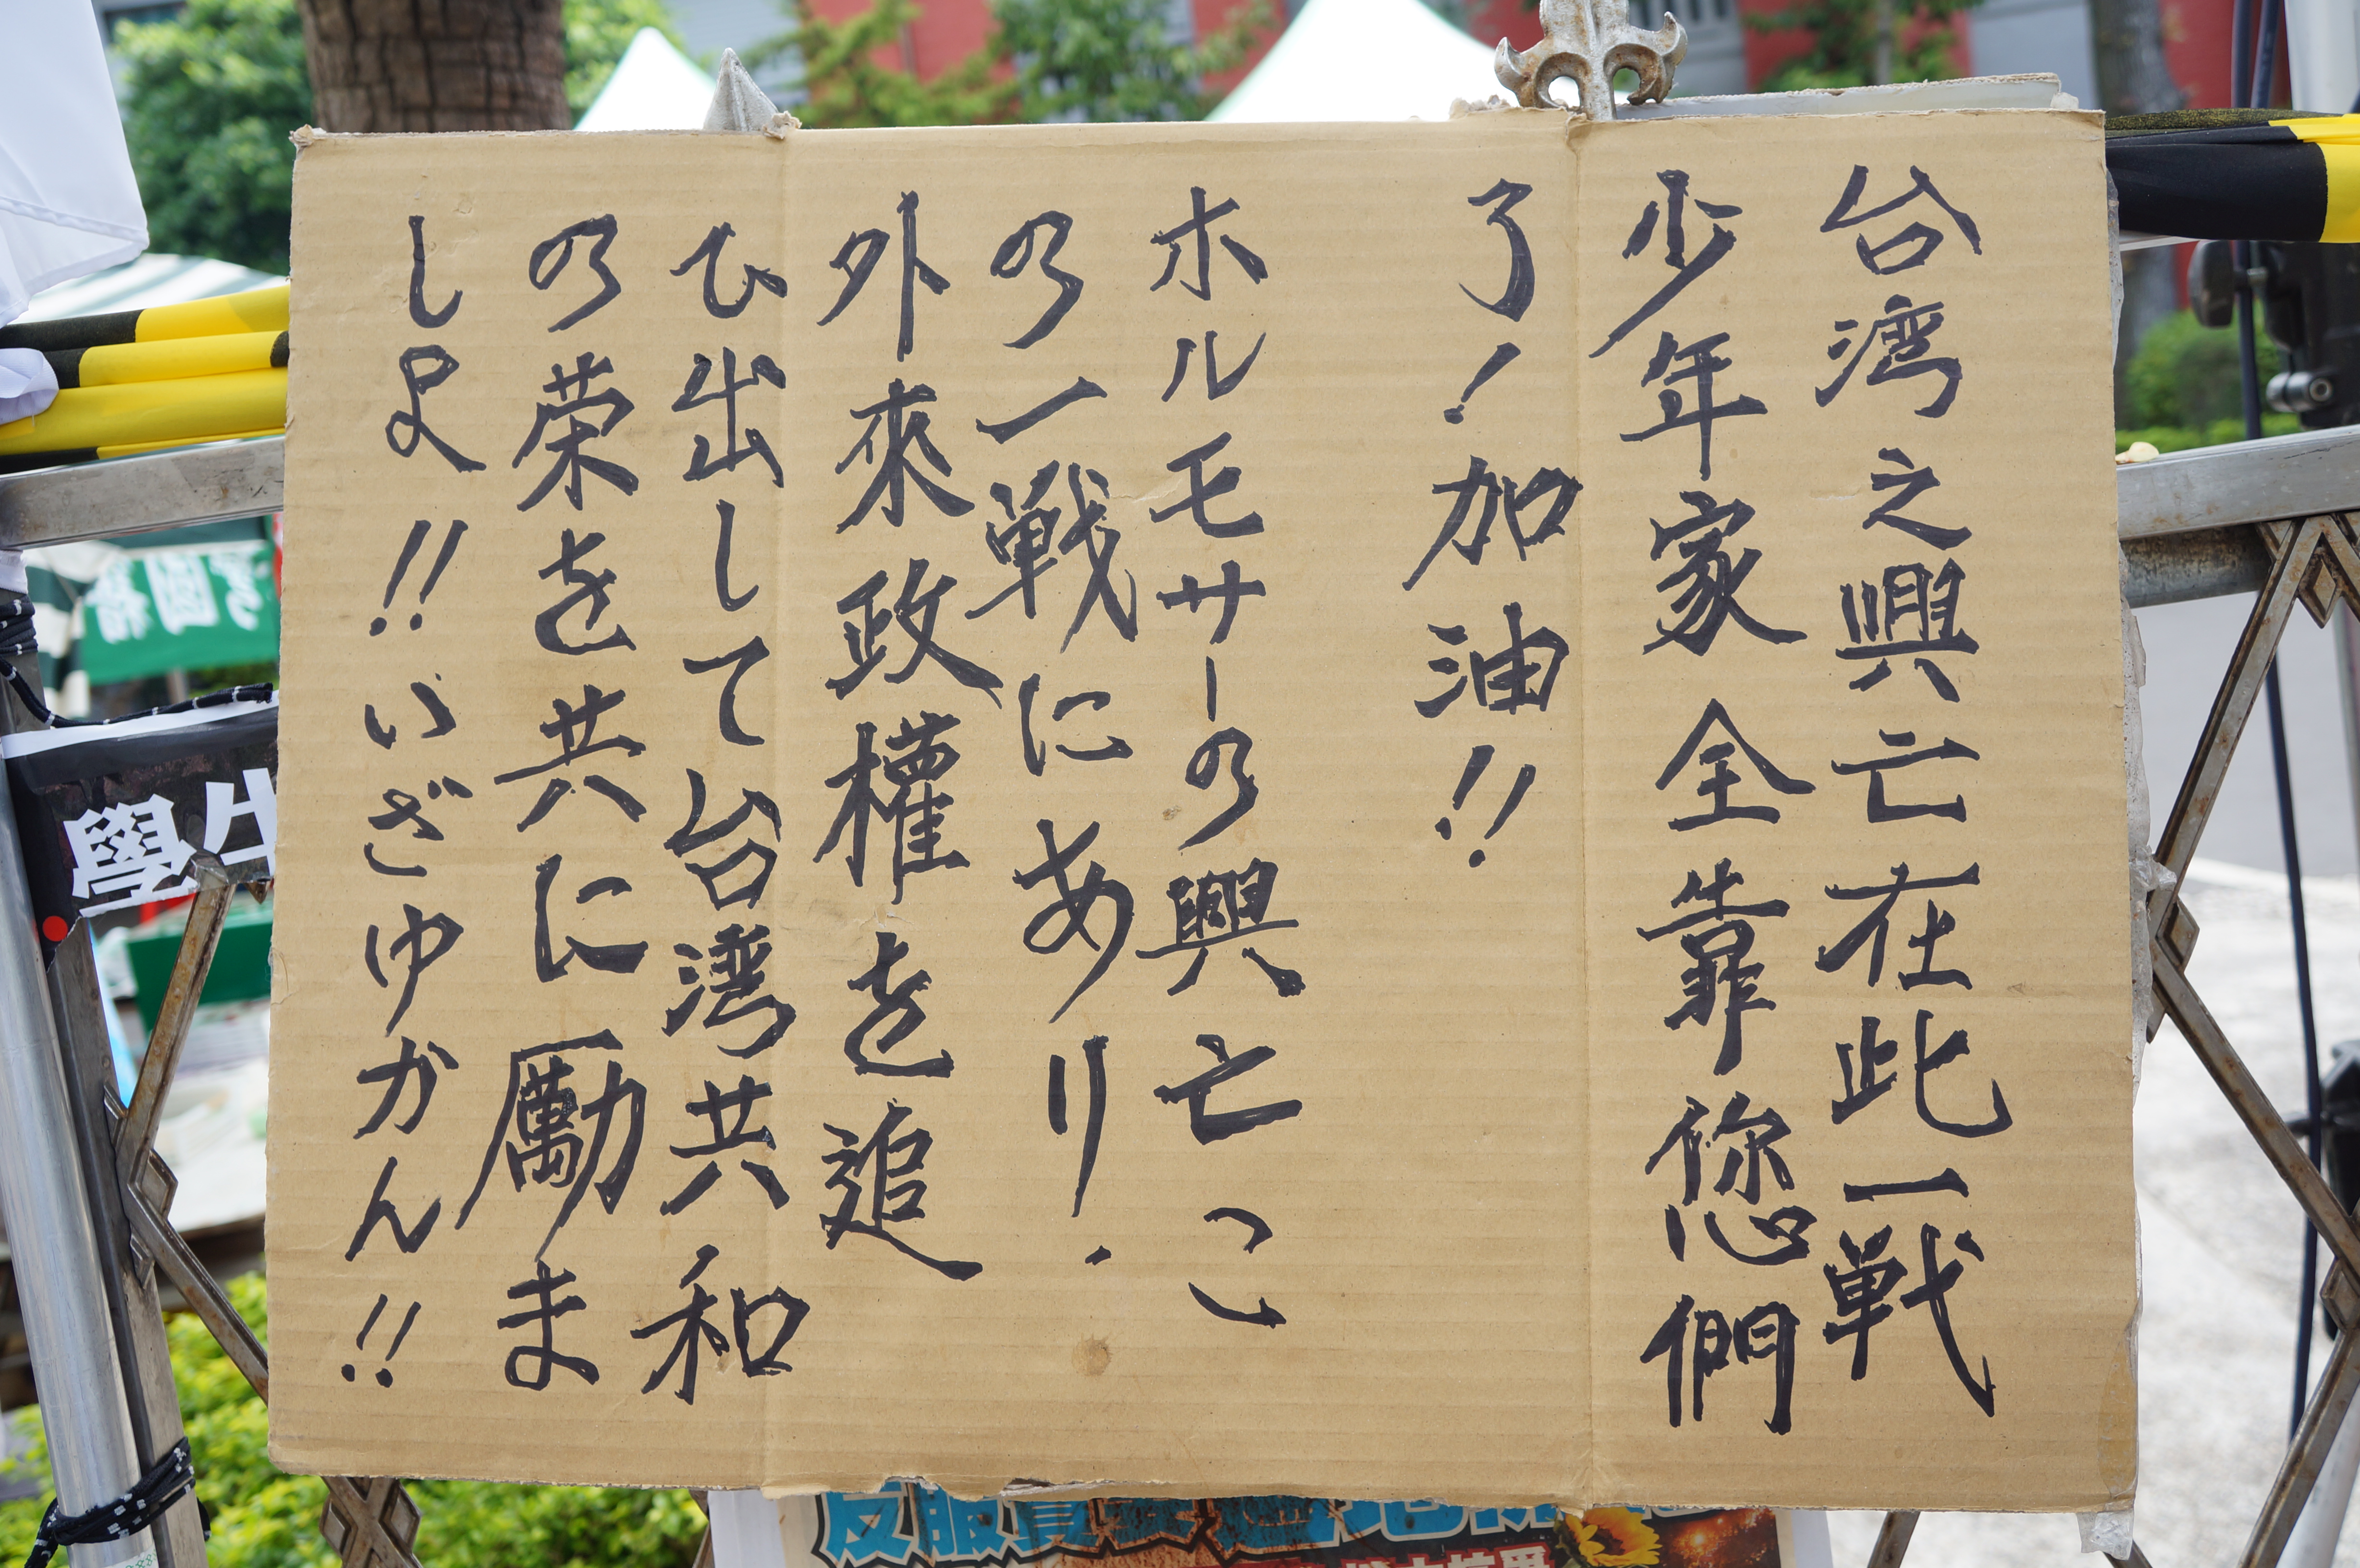 台湾之興亡在此一戦
少年家全靠您們
了！加油!!
ホルモサーの興亡こ
の一戦にあり.
外來政權を追
ひ出して台湾共和
の栄を共に励ま
しよ!!いざゆかん!!
學生
反服貿